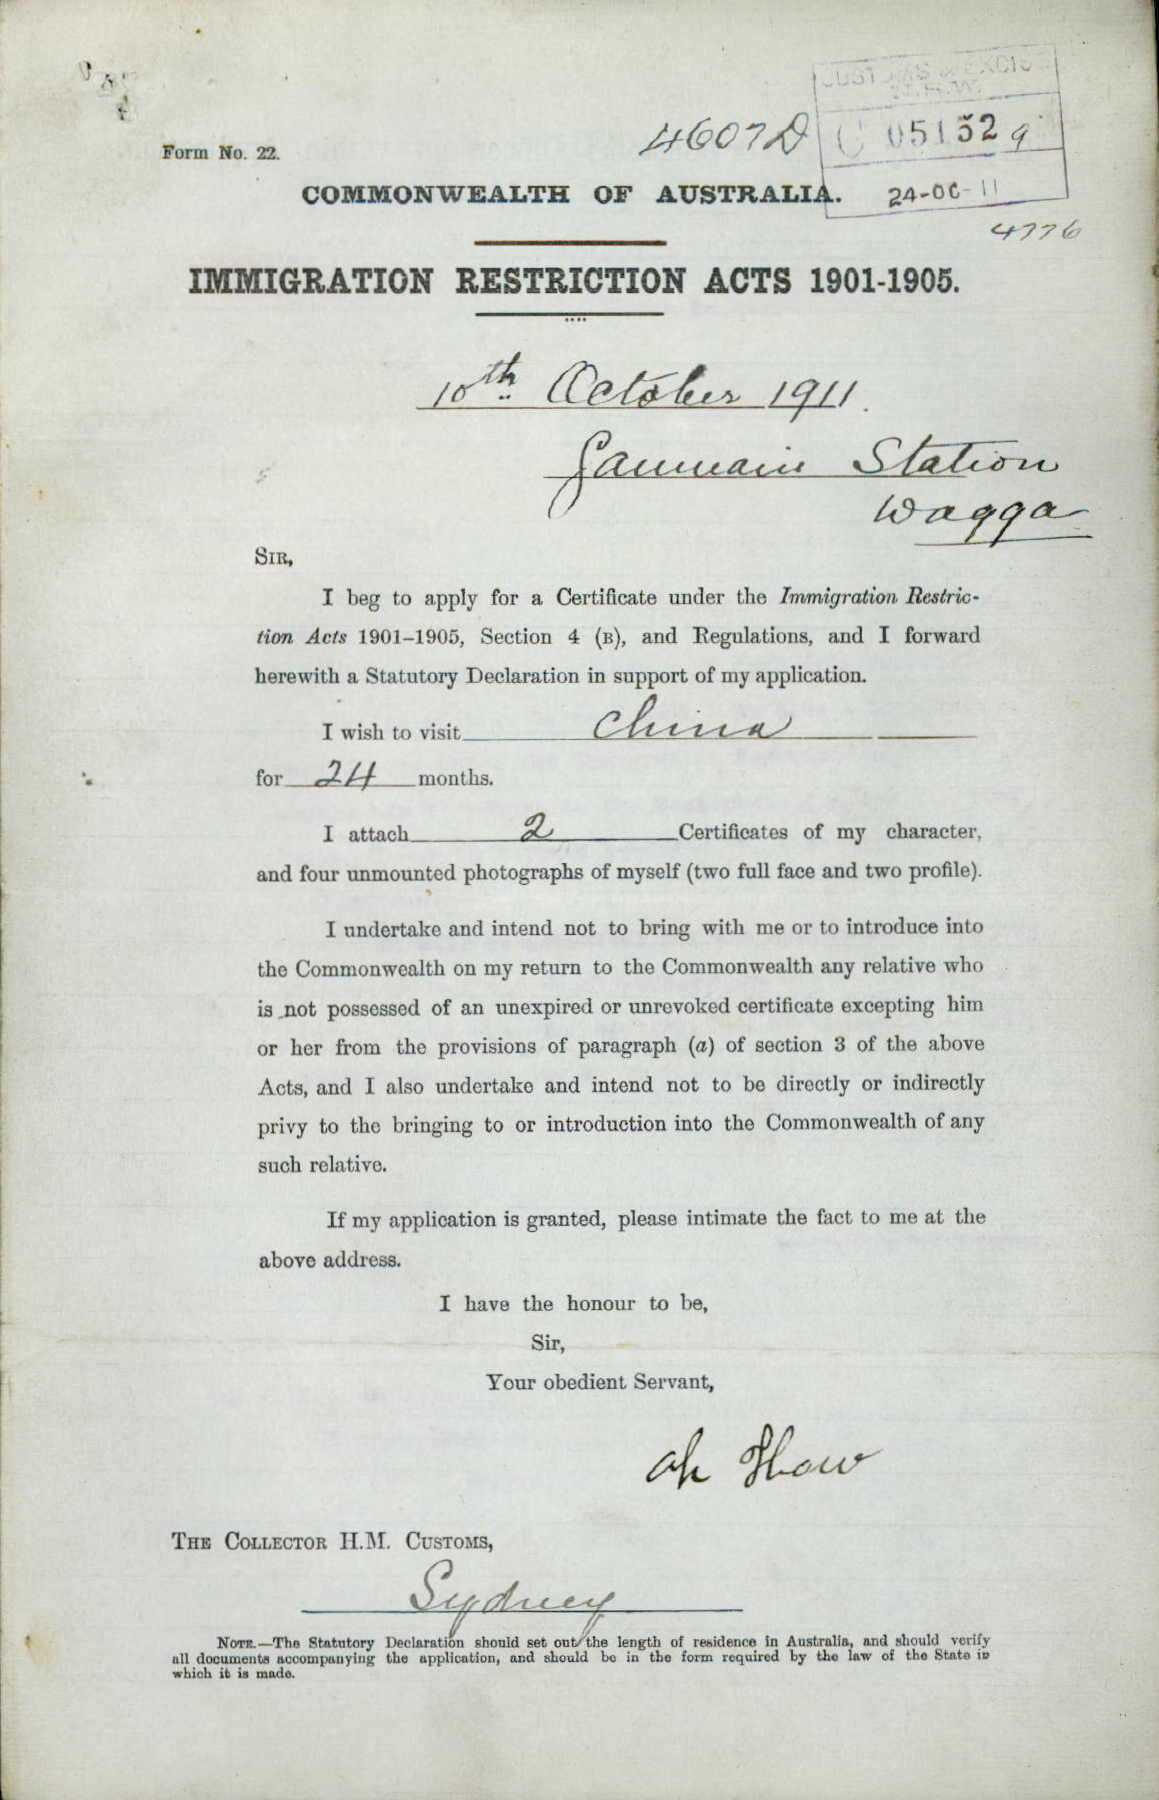 4607D
CUSTOMS & EXCISE
N.S.W.
C 05152 9
24-OC-11
4776
Form No. 22.
COMMONWEALTH OF AUSTRALIA.
IMMIGRATION RESTRICTION ACTS 1901-1905.
10th October 1911.
Station
Wagga
SIR,
I beg to apply for a Certificate under the Immigration Restric-
tion Acts 1901-1905, Section 4 (B), and Regulations, and I forward
herewith a Statutory Declaration in support of my application.
I wish to visit China
for 24 months.
I attach 2 Certificates of my character,
and four unmounted photographs of myself (two full face and two profile).
I undertake and intend not to bring with me or to introduce into
the Commonwealth on my return to the Commonwealth any relative who
is not possessed of an unexpired or unrevoked certificate excepting him
or her from the provisions of paragraph (a) of section 3 of the above
Acts, and I also undertake and intend not to be directly or indirectly
privy to the bringing to or introduction into the Commonwealth of any
such relative.
If my application is granted, please intimate the fact to me at the
above address.
I have the honour to be,
Sir,
Your obedient Servant,
Ah How
THE COLLECTOR H.M. CUSTOMS,
Sydney
NOTE.—The Statutory Declaration should set out the length of residence in Australia, and should verify
all documents accompanying the application, and should be in the form required by the law of the State in
which it is made.